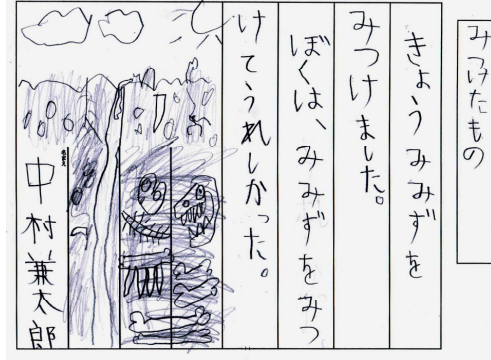 みつけたもの
きょうみみずを
みつけました。
ぼくは、みみずをみつ
けてうれしかった。
なまえ
中村兼太郎